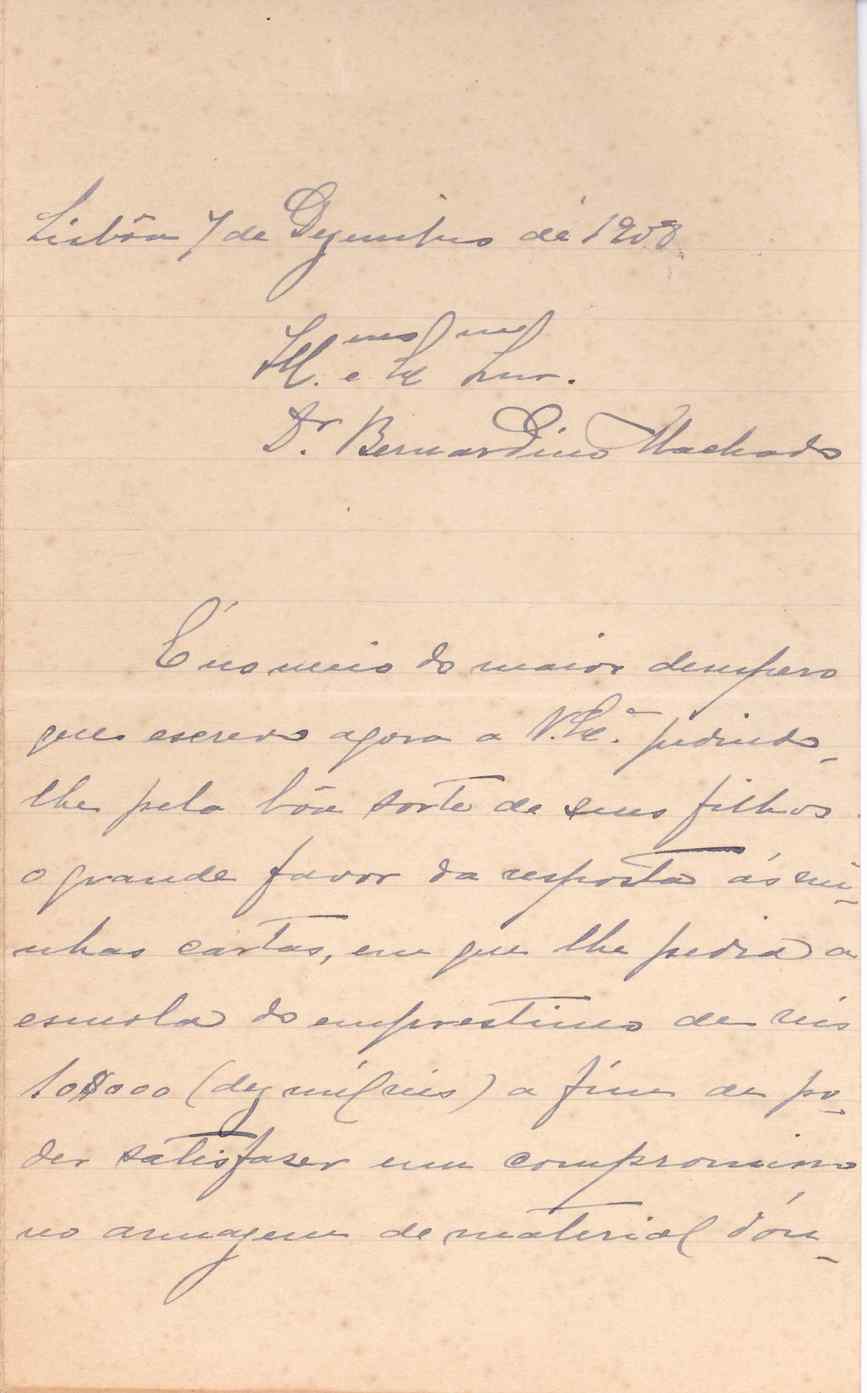 Lisbôa 7 de Dezembro de 1908
Ill.mo e Ex.mo Snr.
Dr. Bernardino Machado
É no meio do maior desespero
que escrevo agora a V. Ex.ª pedindo-
lhe pela bôa sorte de seus filhos
o grande favor da resposta ás mi-
nhas cartas, em que lhe pedia a
esmola do emprestimo de reis
10$000 (dez mil reis) a fim de po-
der satisfazer um compromisso
no armazem de material d'on-